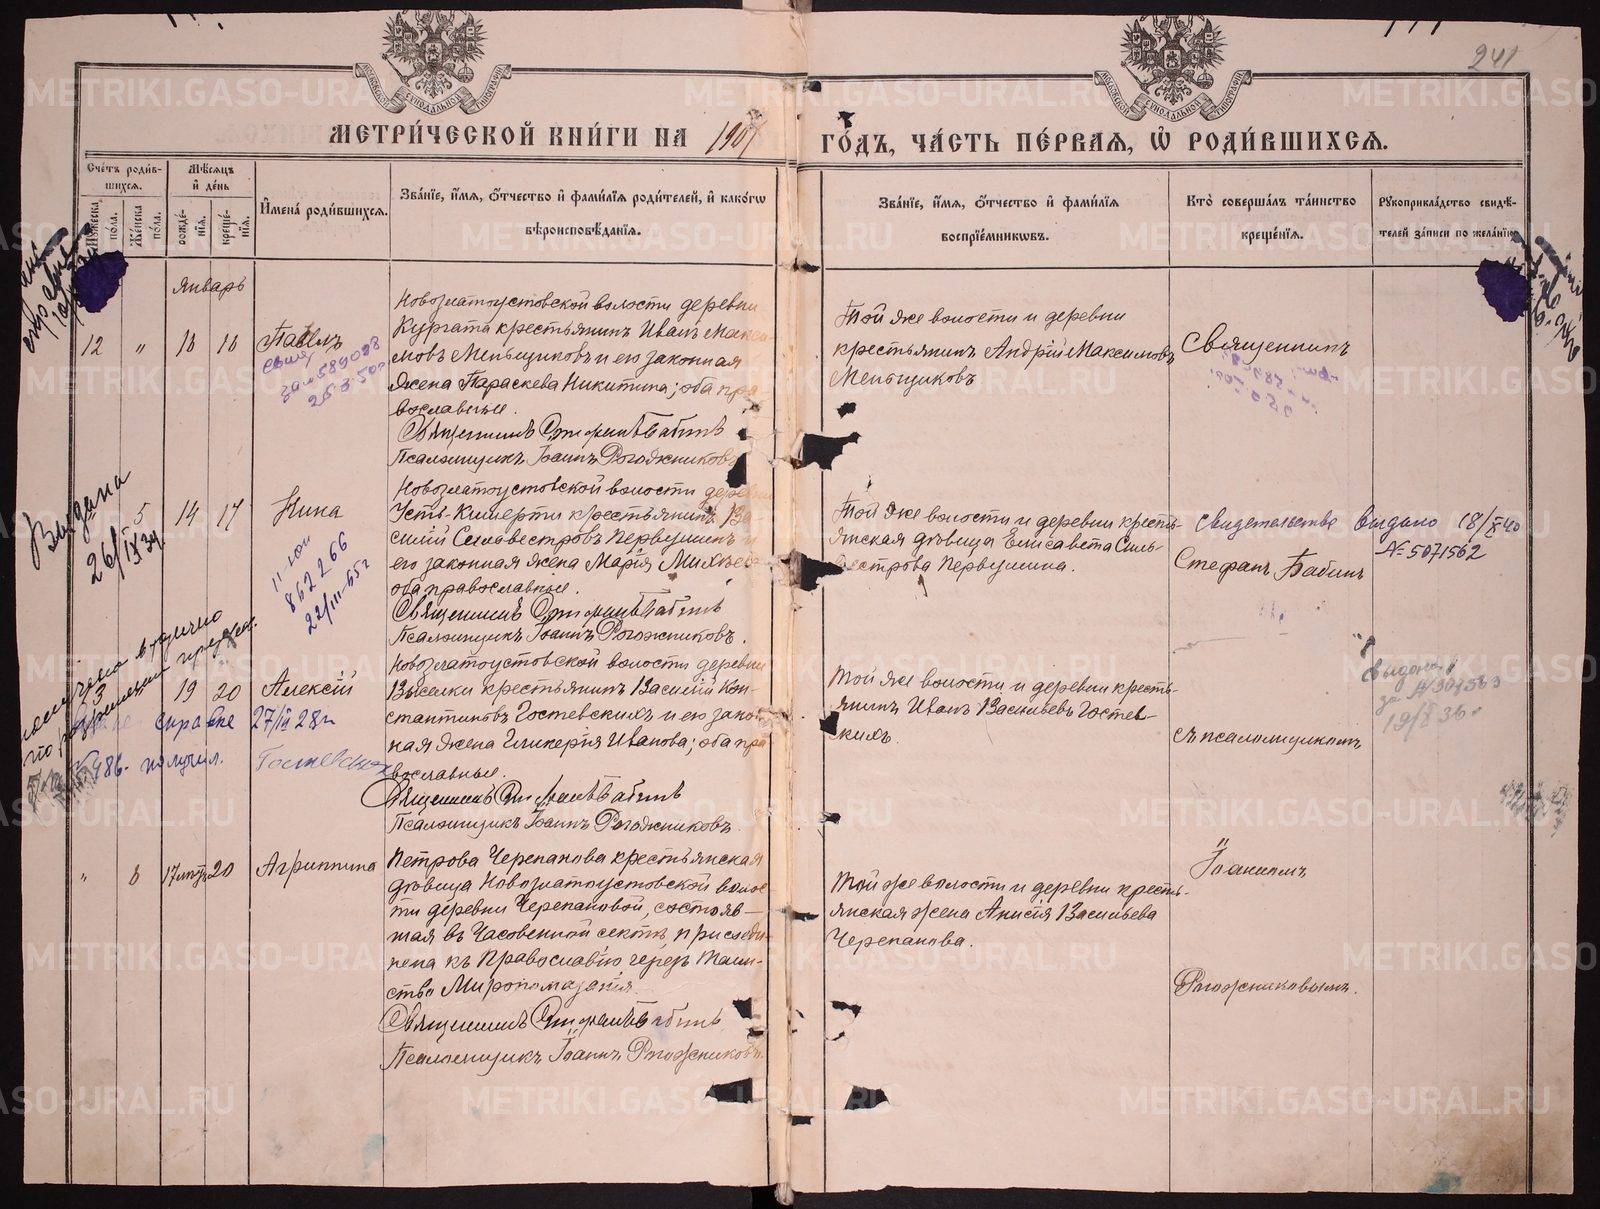 241
МЕТРИЧЕСКОЙ КНИГИ НА 1907 ГОДЪ, ЧАСТЬ ПЕРВАЯ, Ѡ РОДИВШИХСЯ.
Счетъ родив-
шихся.
Мѣсяцъ
и день
Мужеска
пола.
Женска
пола.
рожде-
нія.
креще-
нія.
Имена родившихся.
Званіе, имя, отчество и фамилія родителей, и какогѡ
вѣроисповѣданія.
Званіе, имя, отчество и фамилія
воспріемникωвъ.
Кто совершалъ таинство
крещенія.
Рукоприкладство свидѣ-
телей записи по желанію
Январь
12 " 16 16 Павелъ
589028
Новозлатоустовской волости деревни
Кургата крестьянинъ Иванъ Макси-
мовъ Меньщиковъ и его законная
жена Параскева Никитина; оба пра
вославные.
Священникъ Стефанъ Бабинъ
Псаломщикъ Іоаннъ Рогожниковъ
Той же волости и деревни
крестьянинъ Андрій Максимовъ
Меньщиковъ
Священникъ
Выдана
26/IX 39
5 14 17 Нина
862266
22/III-65г
Новозлатоустовской волости дерев
Усть-Кишерти крестьянинъ Ва
силій Селивестровъ Первушинъ и
его законная жена Марія Михеева
оба православные.
Священникъ Стефанъ Бабинъ
Псаломщикъ Іоаннъ Рогожниковъ.
Той же волости и деревни кресть-
янская дѣвица Елисавета Силь-
вестрова Первушина.
свидетельство выдано 18/X 40
№ 5071562
Стефанъ Бабинъ
3 19 20 Алексій
справке 27/III 28г
получил. Гостевских
Новозлатоустовской волости деревни
Выселки крестьянинъ Василій Кон-
стантиновъ Гостевскихъ и его закон
ная жена Гликерія Иванова; оба пра
вославные.
Священникъ Стефанъ Бабинъ
Псаломщикъ Іоаннъ Рогожниковъ.
Той же волости и деревни кресть-
янинъ Иванъ Васильевъ Гостев-
скихъ.
съ псаломщикомъ
выдана
за
19/X 36г
" 6 20 Агриппина
Петрова Черепанова крестьянская
дѣвица Новозлатоустовской волос-
ти деревни Черепановой, состояв-
шая въ Часовенной сектѣ, присоеди-
нена къ Православію черезъ Таин-
ство Миропомазанія.
Священникъ Стефанъ Бабинъ
Псаломщикъ Іоаннъ Рогожниковъ.
Той же волости и деревни кресть-
янская жена Анисія Васильева
Черепанова.
Іоанномъ
Рогожниковымъ.
METRIKI.GASO-URAL.RU